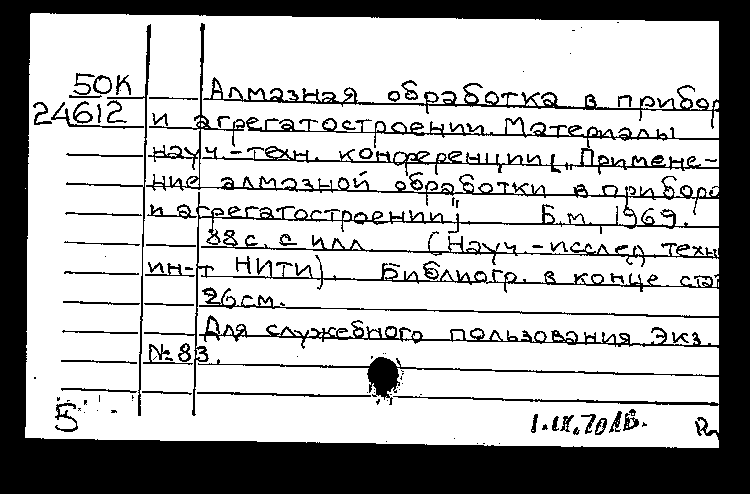 50К Алмазная обработка в прибор
24612 и агрегатостроении. Материалы
науч.-техн. конференции [„Примене-
ние алмазной обработки в приборо
и агрегатостроении"]. Б.м., 1969.
88 с. с илл. (Науч.-исслед. техн
ин-т НИТИ). Библиогр. в конце стат
26 см.
Для служебного пользования. Экз.
№ 83.
Б 1.IX.70